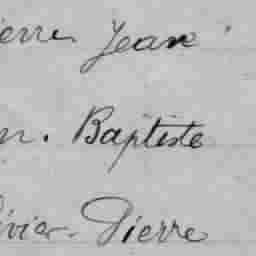 ierre Jean
n. Baptiste
ivier. Pierre